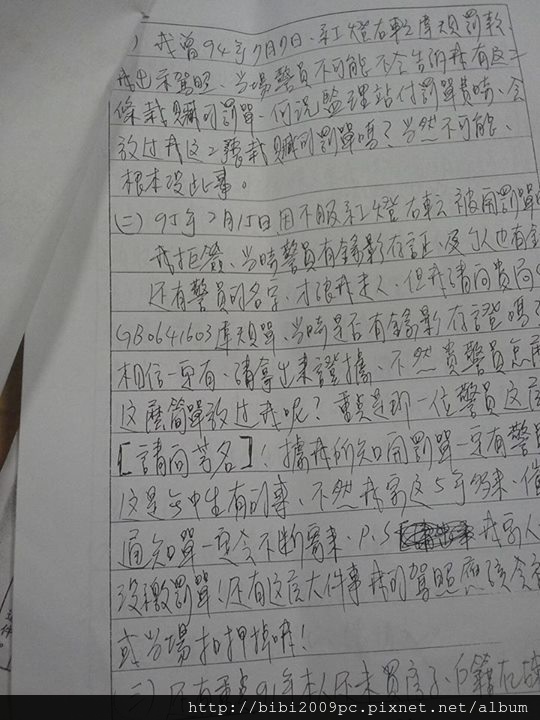 一) 我曾94年7月7日、紅燈右轉違規罰款
我出示駕照、當場警員不可能不會告訴我有這二
條栽贓的罰單、何況監理站付罰單費時、會
放過我這二張栽贓的罰單嗎?當然不可能、
根本沒此事。
(二) 95年2月15日因不服紅燈右轉被開罰單
我拒簽、當時警員有錄影存証、及本人也有
還有警員的名字、才讓我走人、但我請問貴局
GB0641603違規單、當時是否有錄影存證嗎
相信一定有、請拿出來證據、不然貴警員怎
這麼簡單放過我呢?真是那一位警員這
[請問芳名]!據我所知開罰單一定有警
這是無中生有的事、不然我家這5年多來、催
通知單一定會不斷寄來、P.S 我家人
沒繳罰單!還有這麼大件事我的駕照應該會
或當場扣押掉咪!
(三) 還有 94年本人還未買房子、戶籍在
http://bibi2009pc.pixnet.net/album